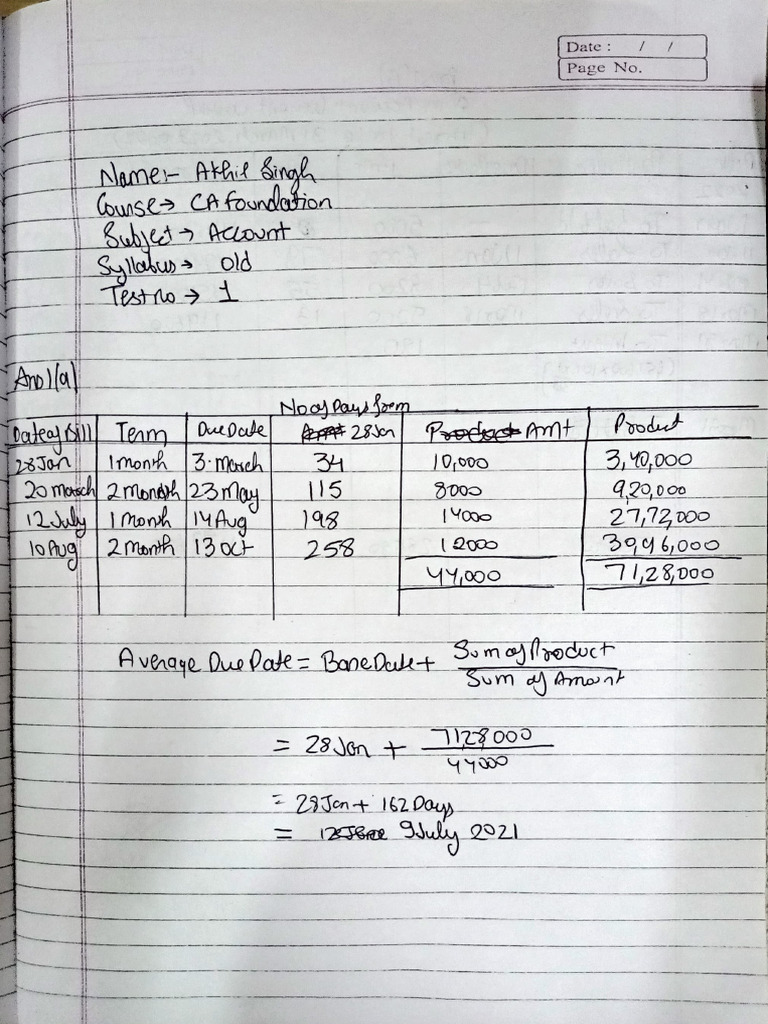 Date : / /
Page No.
Name:- Akhil Singh
Course→ CA foundation
Subject → Account
Syllabus → old
Test no → 1
Ans 1(a)
No of Days from
Date of Bill Term Due Date 28 Jan Amt Product
28 Jan 1 month 3 march 34 10,000 3,40,000
20 march 2 month 23 May 115 8000 9,20,000
12 July 1 month 14 Aug 198 14000 27,72,000
10 Aug 2 month 13 oct 258 12000 30,96,000
44,000 71,28,000
Average Due Date = Base Date + Sum of Product
Sum of Amount
= 28 Jan + 7128000
44000
= 28 Jan + 162 Days
= 9 July 2021